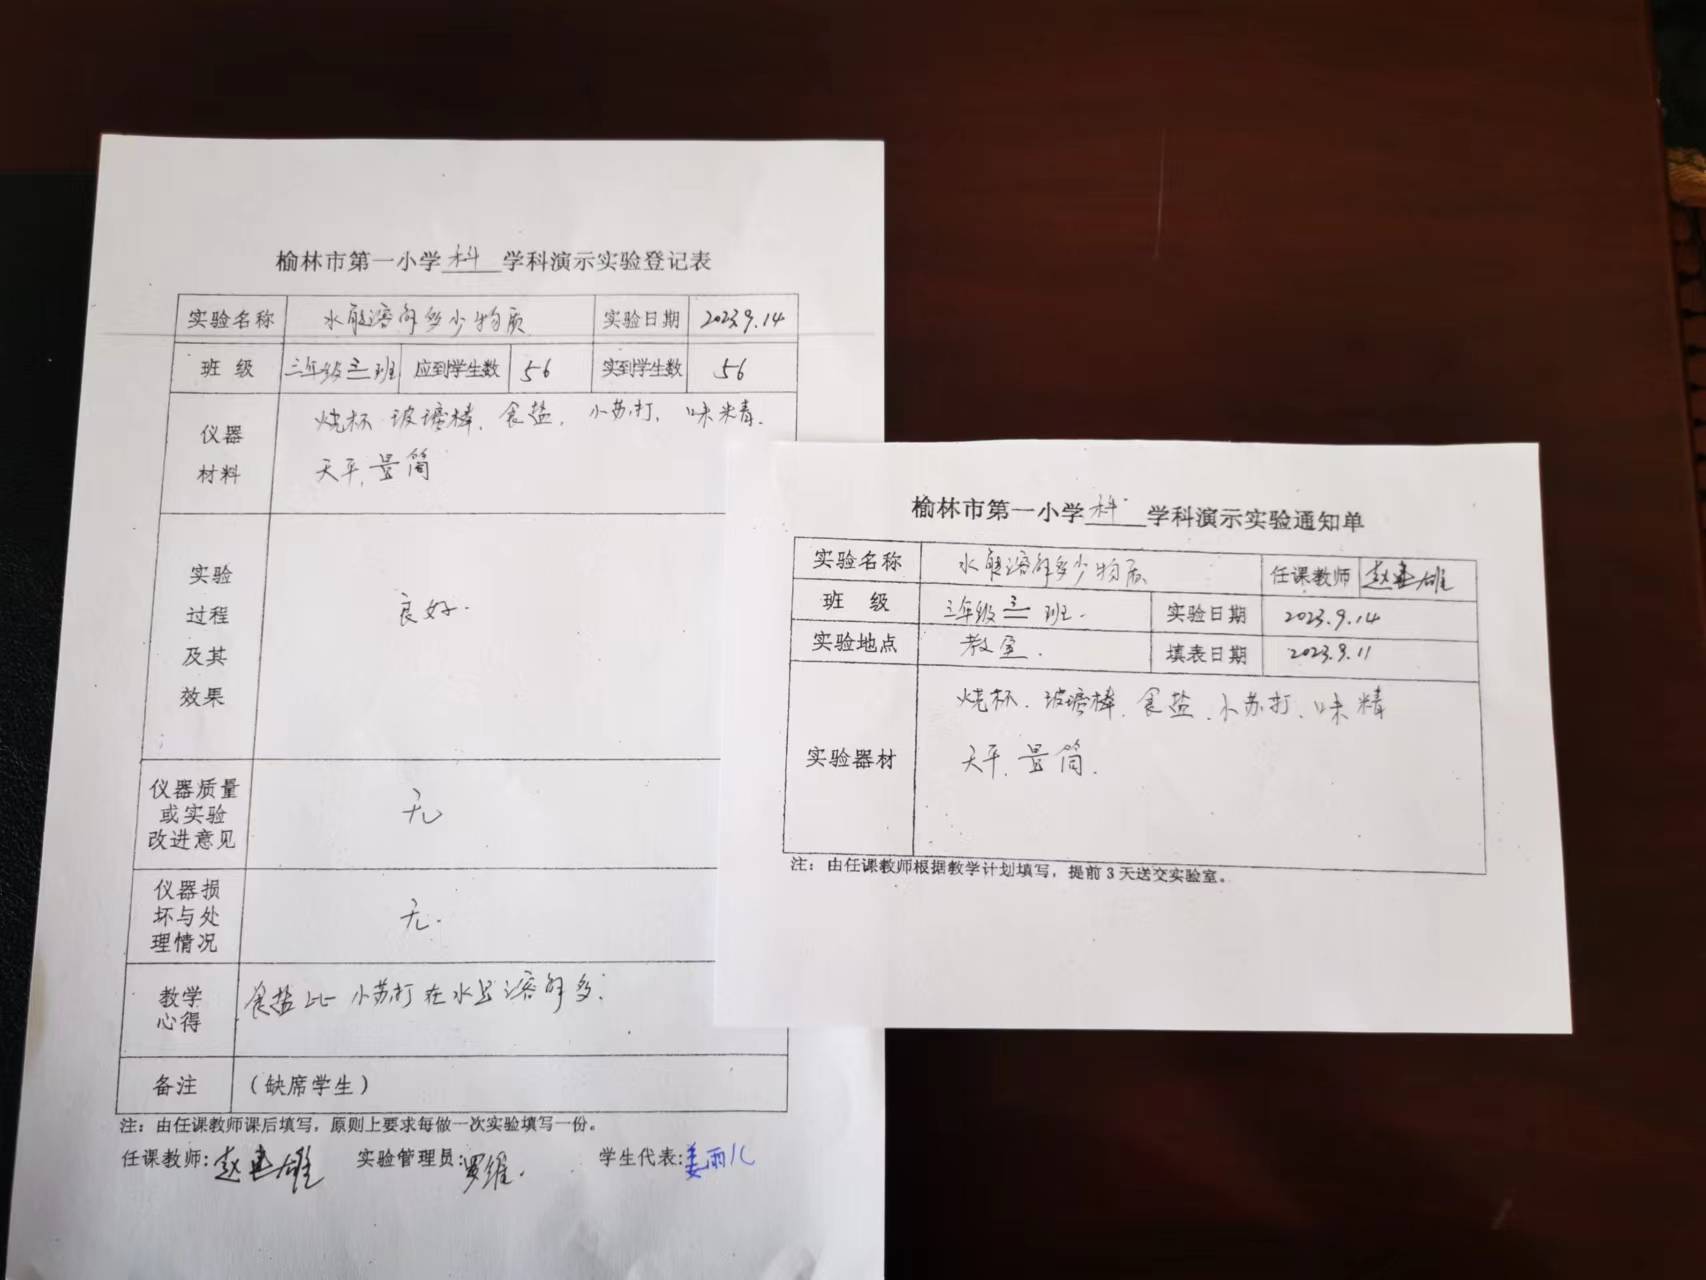 榆林市第一小学科学科演示实验登记表
实验名称 水能溶解多少物质 实验日期 2023.9.14
班 级 三年级三班 应到学生数 56 实到学生数 56
仪器 材料 烧杯 玻璃棒、食盐、小苏打、味精.
天平、量筒
实验 过程 及其 效果 良好.
仪器质量 或实验 改进意见 无
仪器损 坏与处 理情况 无.
教学 心得 食盐比小苏打在水里溶解多.
备注 (缺席学生)
注:由任课教师课后填写,原则上要求每做一次实验填写一份。
任课教师:赵建雄 实验管理员:罗维. 学生代表:姜雨儿
榆林市第一小学科学科演示实验通知单
实验名称 水能溶解多少物质 任课教师 赵建雄
班 级 三年级三班. 实验日期 2023.9.14
实验地点 教室. 填表日期 2023.9.11
实验器材 烧杯、玻璃棒、食盐、小苏打、味精
天平、量筒.
注:由任课教师根据教学计划填写,提前3天送交实验室。